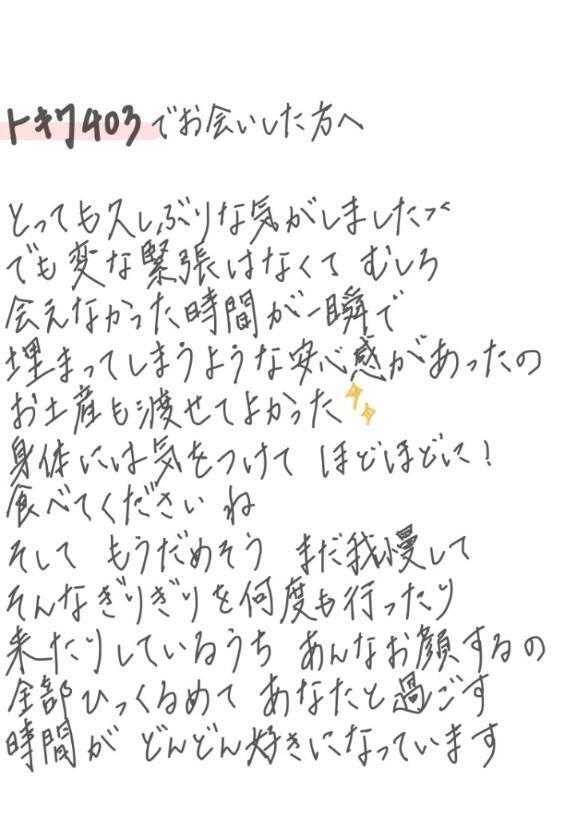 トキワ403でお会いした方へ
とっても久しぶりな気がしました
でも変な緊張はなくて むしろ
会えなかった時間が一瞬で
埋まってしまうような安心感があったの
お土産も渡せてよかった
身体には気をつけて ほどほどに!
食べてくださいね
そして もうだめそう まだ我慢して
そんなぎりぎりを何度も行ったり
来たりしているうち あんなお顔するの
全部ひっくるめて あなたと過ごす
時間が どんどん好きになっています